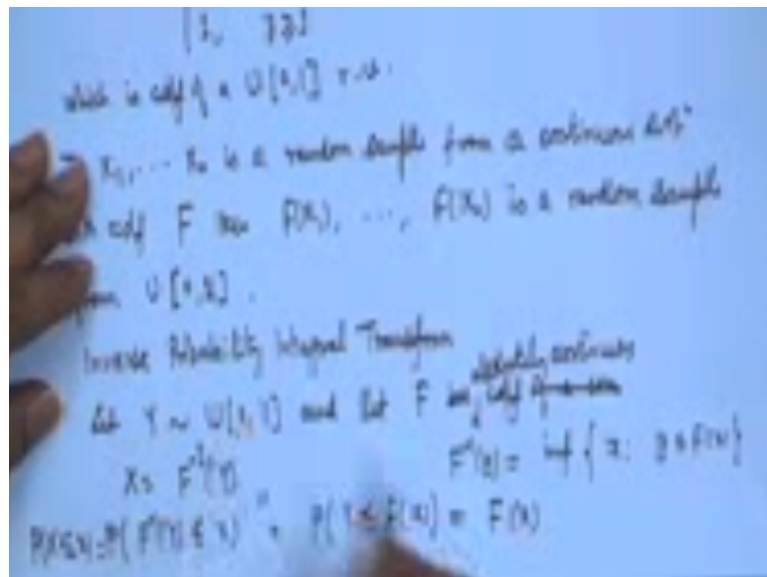 which is cdf of a U[0,1] r.u.
X₁, ... Xₙ is a random sample from a continuous distⁿ
cdf F then F(X₁), ..., F(Xₙ) is a random sample
U[0,1].
Inverse Probability Integral Transform
absolutely continuous
Let Y ~ U[0,1] and let F be cdf
X = F⁻¹(Y) F⁻¹(y) = inf { x: y ≤ F(x)}
P(X≤x) = P( F⁻¹(Y) ≤ x) = P( Y ≤ F(x)) = F(x)